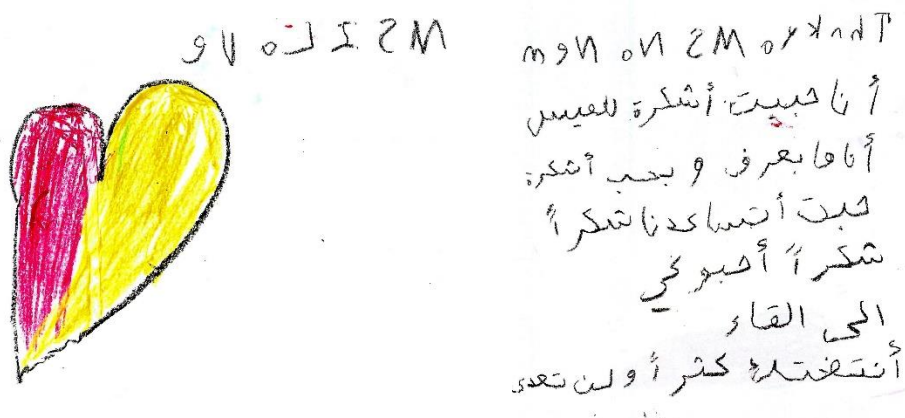 MS I LoVe
Thnkyo MS No Nem
أنا حبيت أشكرة للميس
أنا ما بعرف و بحب أشكرة
حبت أتساعدنا شكراً
شكراً أحبو كي
الى القاء
كثراً و لن